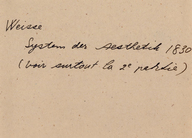 Weisse
System der Aesthetik 1830
(voir surtout la 2e partie)